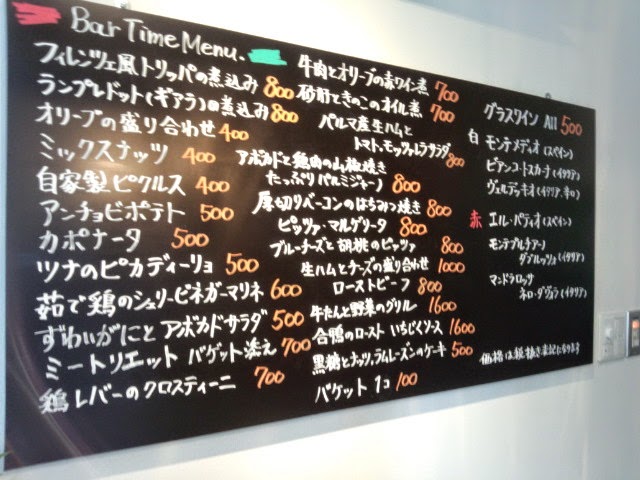 Bar Time Menu.
フィレンツェ風トリッパの煮込み 800
ランプレドット(ギアラ)の煮込み 800
オリーブの盛り合わせ 400
ミックスナッツ 400
自家製ピクルス 400
アンチョビポテト 500
カポナータ 500
ツナのピカディーリョ 500
茹で鶏のシェリービネガーマリネ 600
ずわいがにとアボカドサラダ 500
ミートリエット バゲット添え 700
鶏レバーのクロスティーニ 700
牛肉とオリーブの赤ワイン煮 700
砂肝ときのこのオイル煮 700
パルマ産生ハムと
トマト、モッツァレラサラダ 800
アボカドと鶏肉の山椒焼き
たっぷりパルミジャーノ 800
厚切りベーコンのはちみつ焼き 800
ピッツァ・マルゲリータ 800
ブルーチーズと胡桃のピッツァ 800
生ハムとチーズの盛り合わせ 1000
ローストビーフ 800
牛たんと野菜のグリル 1600
合鴨のロースト いちじくソース 1600
黒糖とナッツ、ラムレーズンのケーキ 500
バゲット 1コ 100
グラスワイン All 500
白 モンテメディオ(スペイン)
ビアンコ・トスカーナ(イタリア)
ヴェルデッキオ(イタリア、辛口)
赤 エル・パティオ(スペイン)
モンテプルチアーノ
ダブルッツォ(イタリア)
マンドラロッサ
ネロ・ダヴォラ(イタリア)
価格は税抜き表記になります